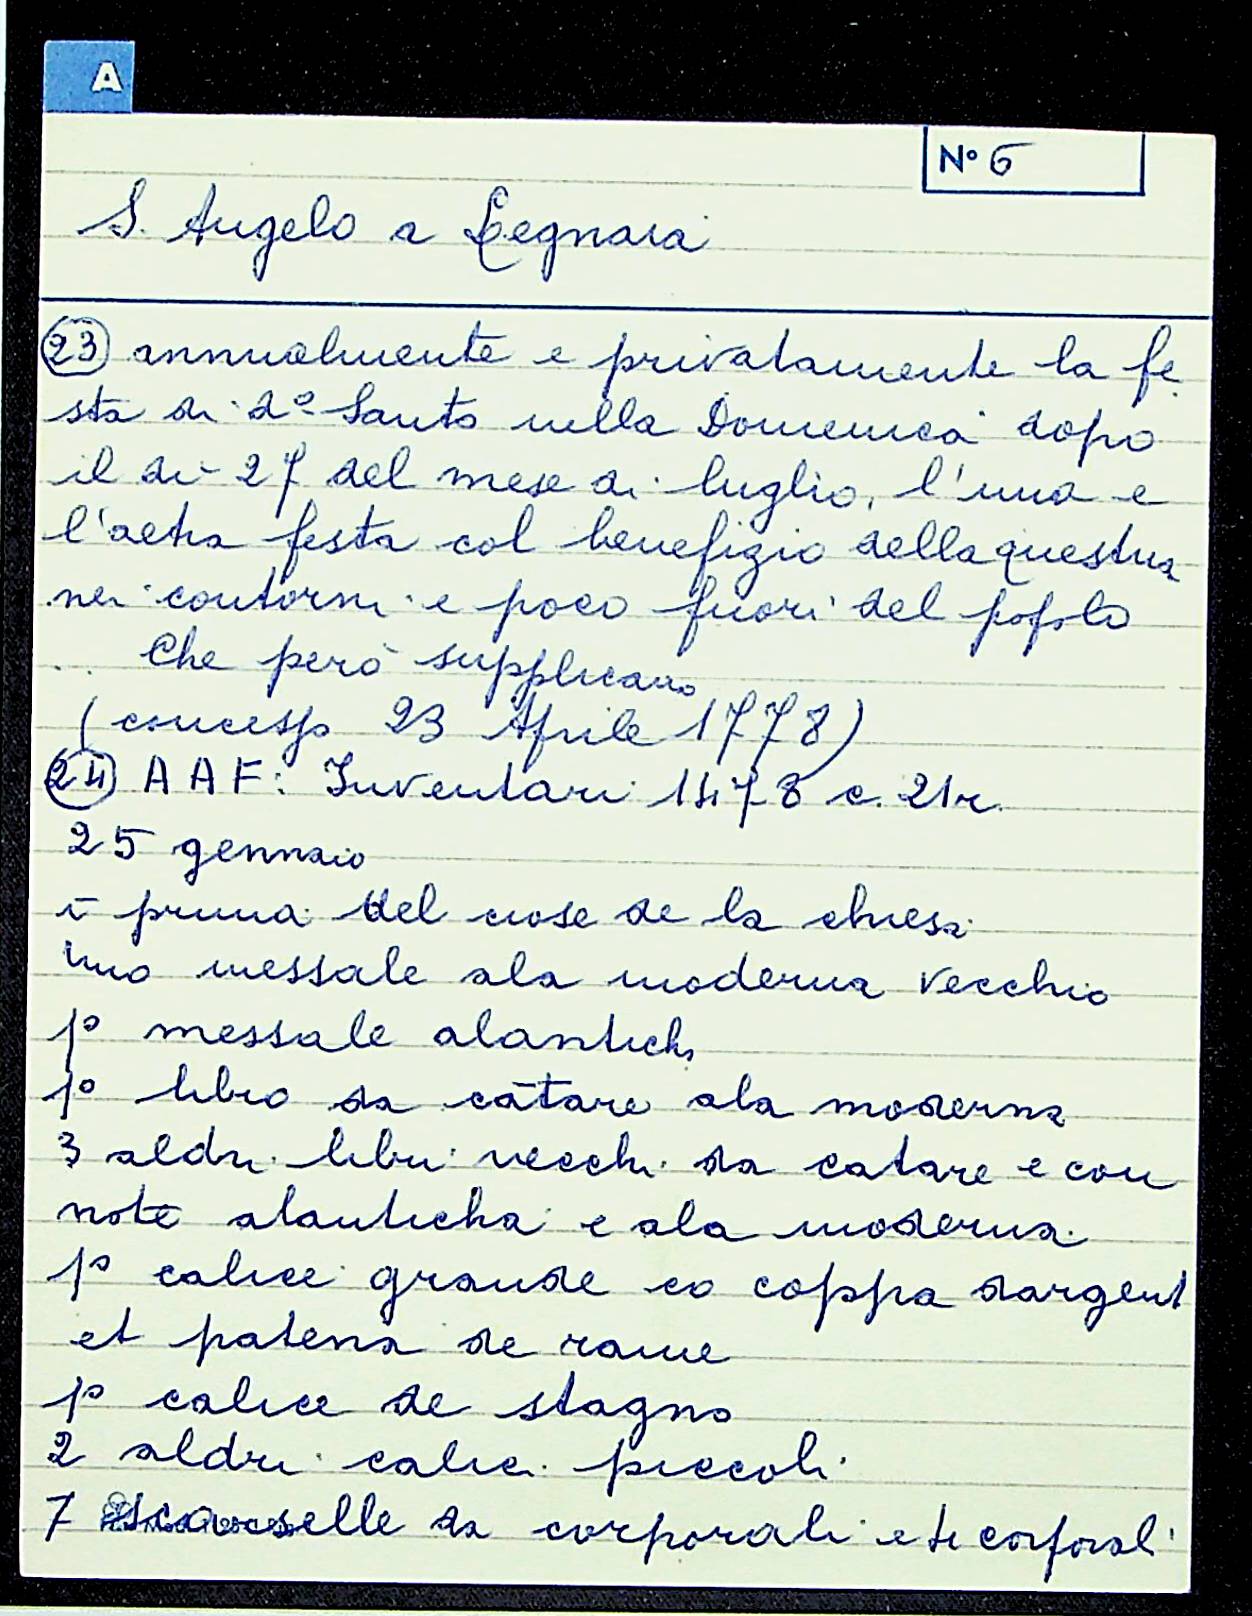 A
N° 6
S. Angelo a Legnaia
23 annualmente e privatamente la fe
sta di d° Santo nella Domenica dopo
il di 27 del mese di luglio, l'una e
l'altra festa col benefizio della questua
nei contorni e poco fuori del popolo
.. Che però supplicano
(concesso 23 Aprile 1778)
24 AAF: Inventari 1478 c. 21r.
25 gennaio
prima del cose de la chiesa
Uno messale ala moderna vecchio
1° messale alanticha
1° libro da cātare ala moderna
3 aldri libri vecchi da catare e con
note alanticha e ala moderna
1° calice grande co coppa dargent
et patena de rame
1° calice de stagno
2 aldri calici piccoli
7 scarselle da corporali e corporali